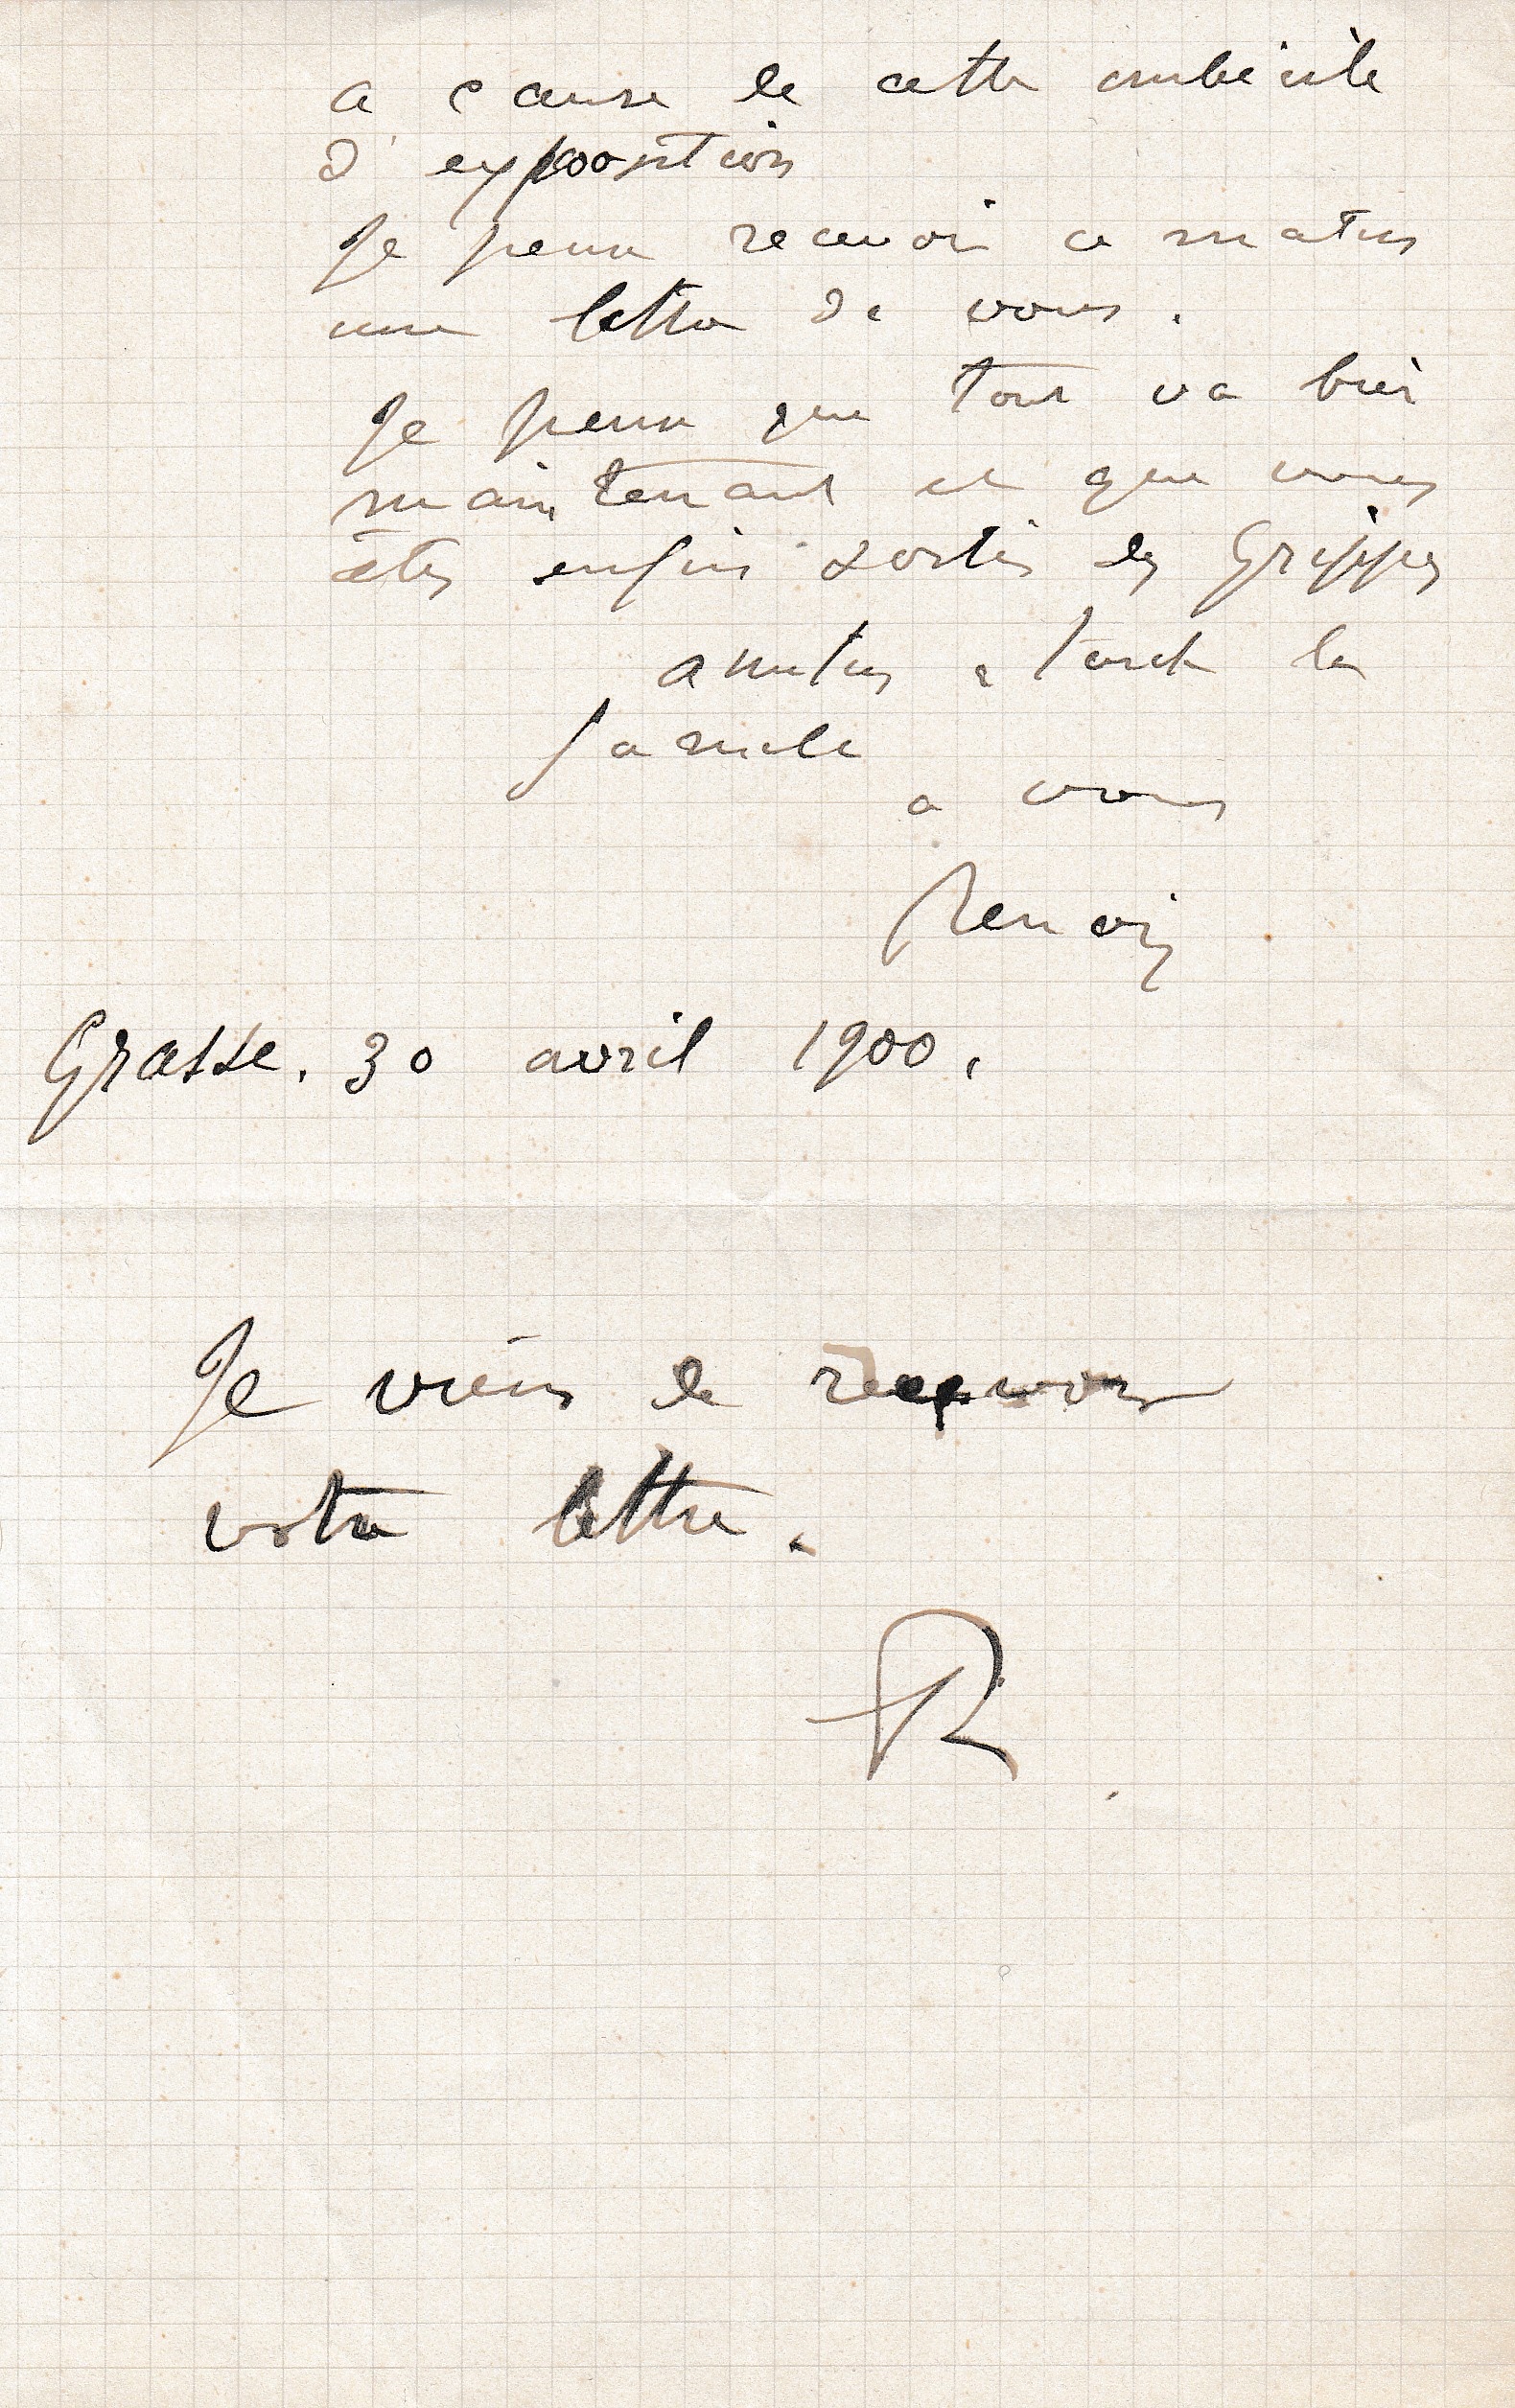 a cause de cette imbécile
d'exposition
Je pense recevoir ce matin
une lettre de vous.
Je pense que tout va bien
maintenant et que vous
êtes enfin sortis des Grippes
amitiés a toute la
famille
a vous
Renoir
Grasse. 30 avril 1900.
Je viens de recevoir
votre lettre.
R